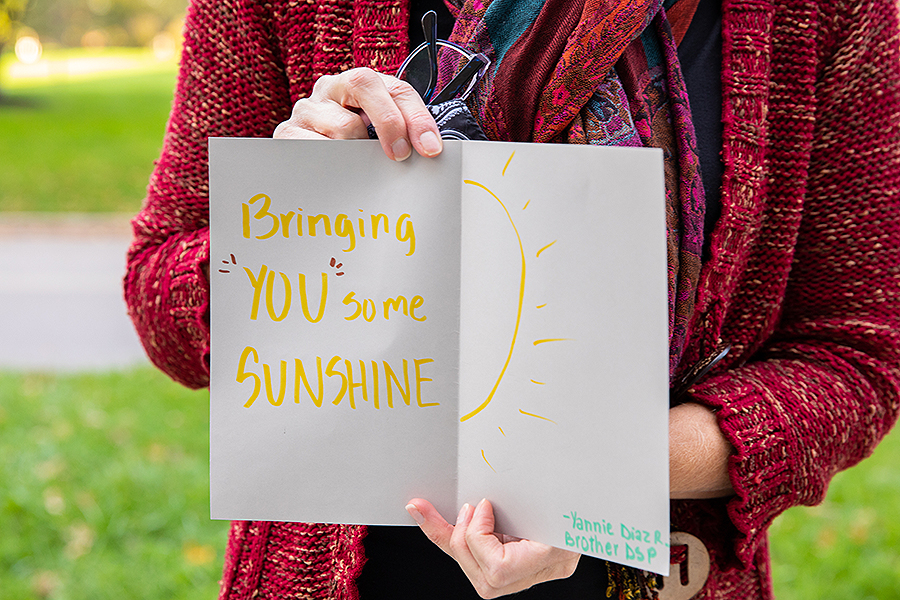 Bringing
"YOU" some
SUNSHINE
-Yannie Diaz R.
Brother DSP